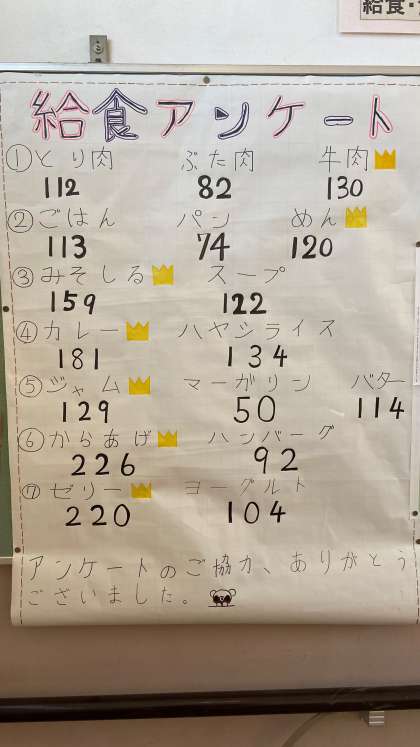 給食・
給食アンケート
①とり肉 ぶた肉 牛肉
112 82 130
②ごはん パン めん
113 74 120
③みそしる スープ
159 122
④カレー ハヤシライス
181 134
⑤ジャム マーガリン バター
129 50 114
⑥からあげ ハンバーグ
226 92
⑦ゼリー ヨーグルト
220 104
アンケートのご協力、ありがとう
ございました。